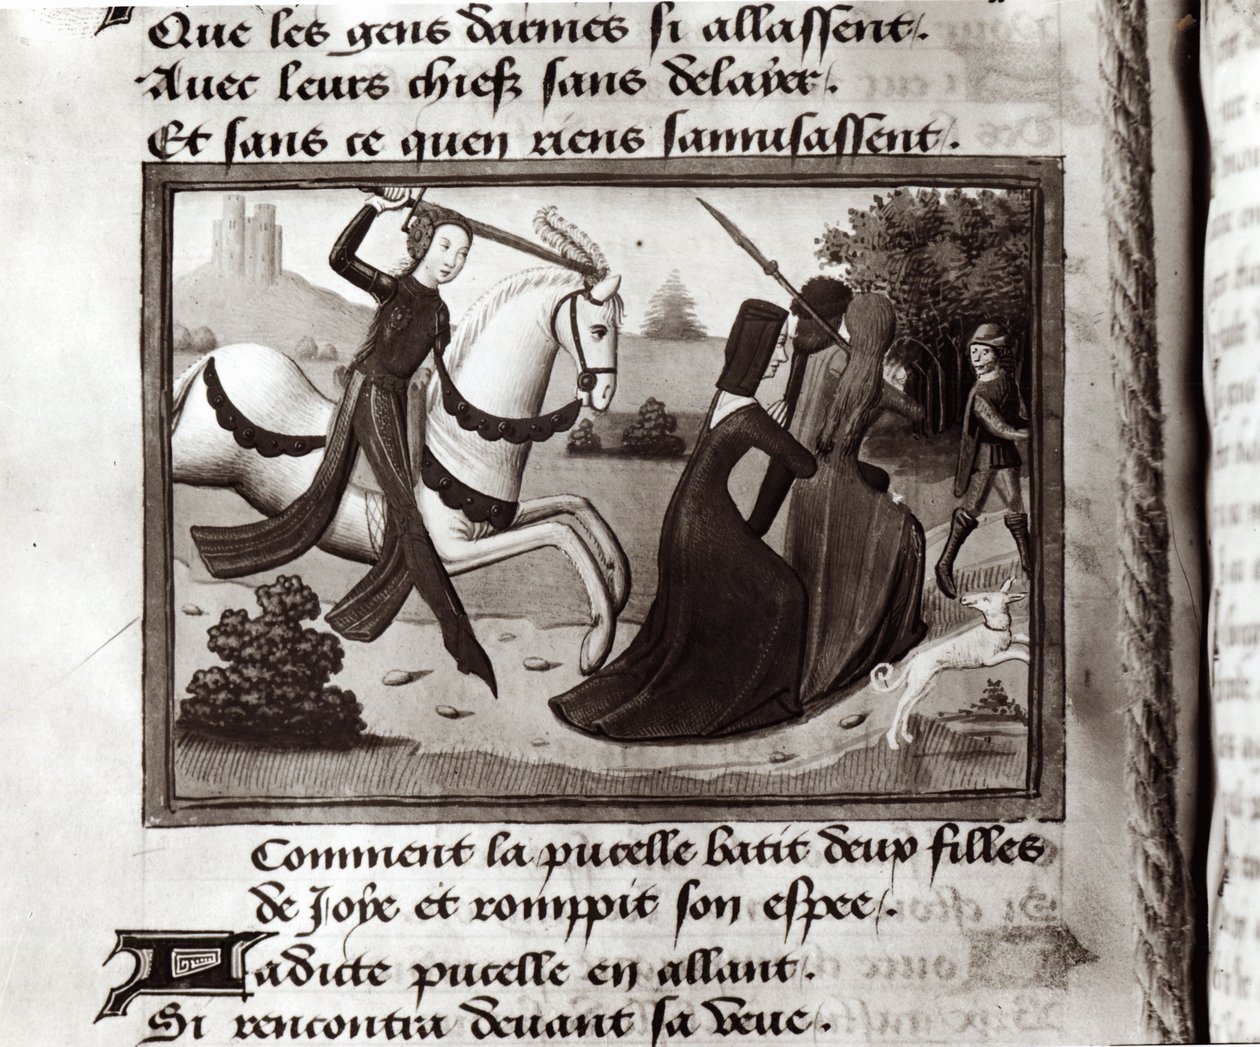 Que les gens darmes si allassent.
Auec leurs chiefz sans delayer.
Et sans ce quen riens samusassent.
Comment la pucelle batit deux filles
de Joye et romppit son espee.
Ladicte pucelle en allant.
Si rencontra deuant sa veue.